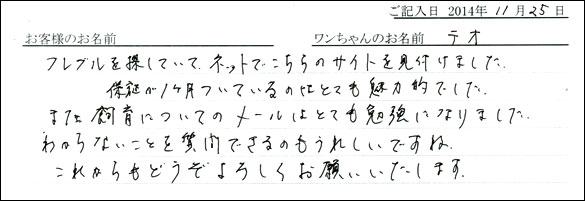 ご記入日 2014年 11月 25日
お客様のお名前 ワンちゃんのお名前 テオ
フレブルを探していて、ネットでこちらのサイトを見付けました。
保証が1ヶ月ついているのはとても魅力的でした。
また飼育についてのメールはとても勉強になりました。
わからないことを質問できるのもうれしいですね。
これからもどうぞよろしくお願いいたします。